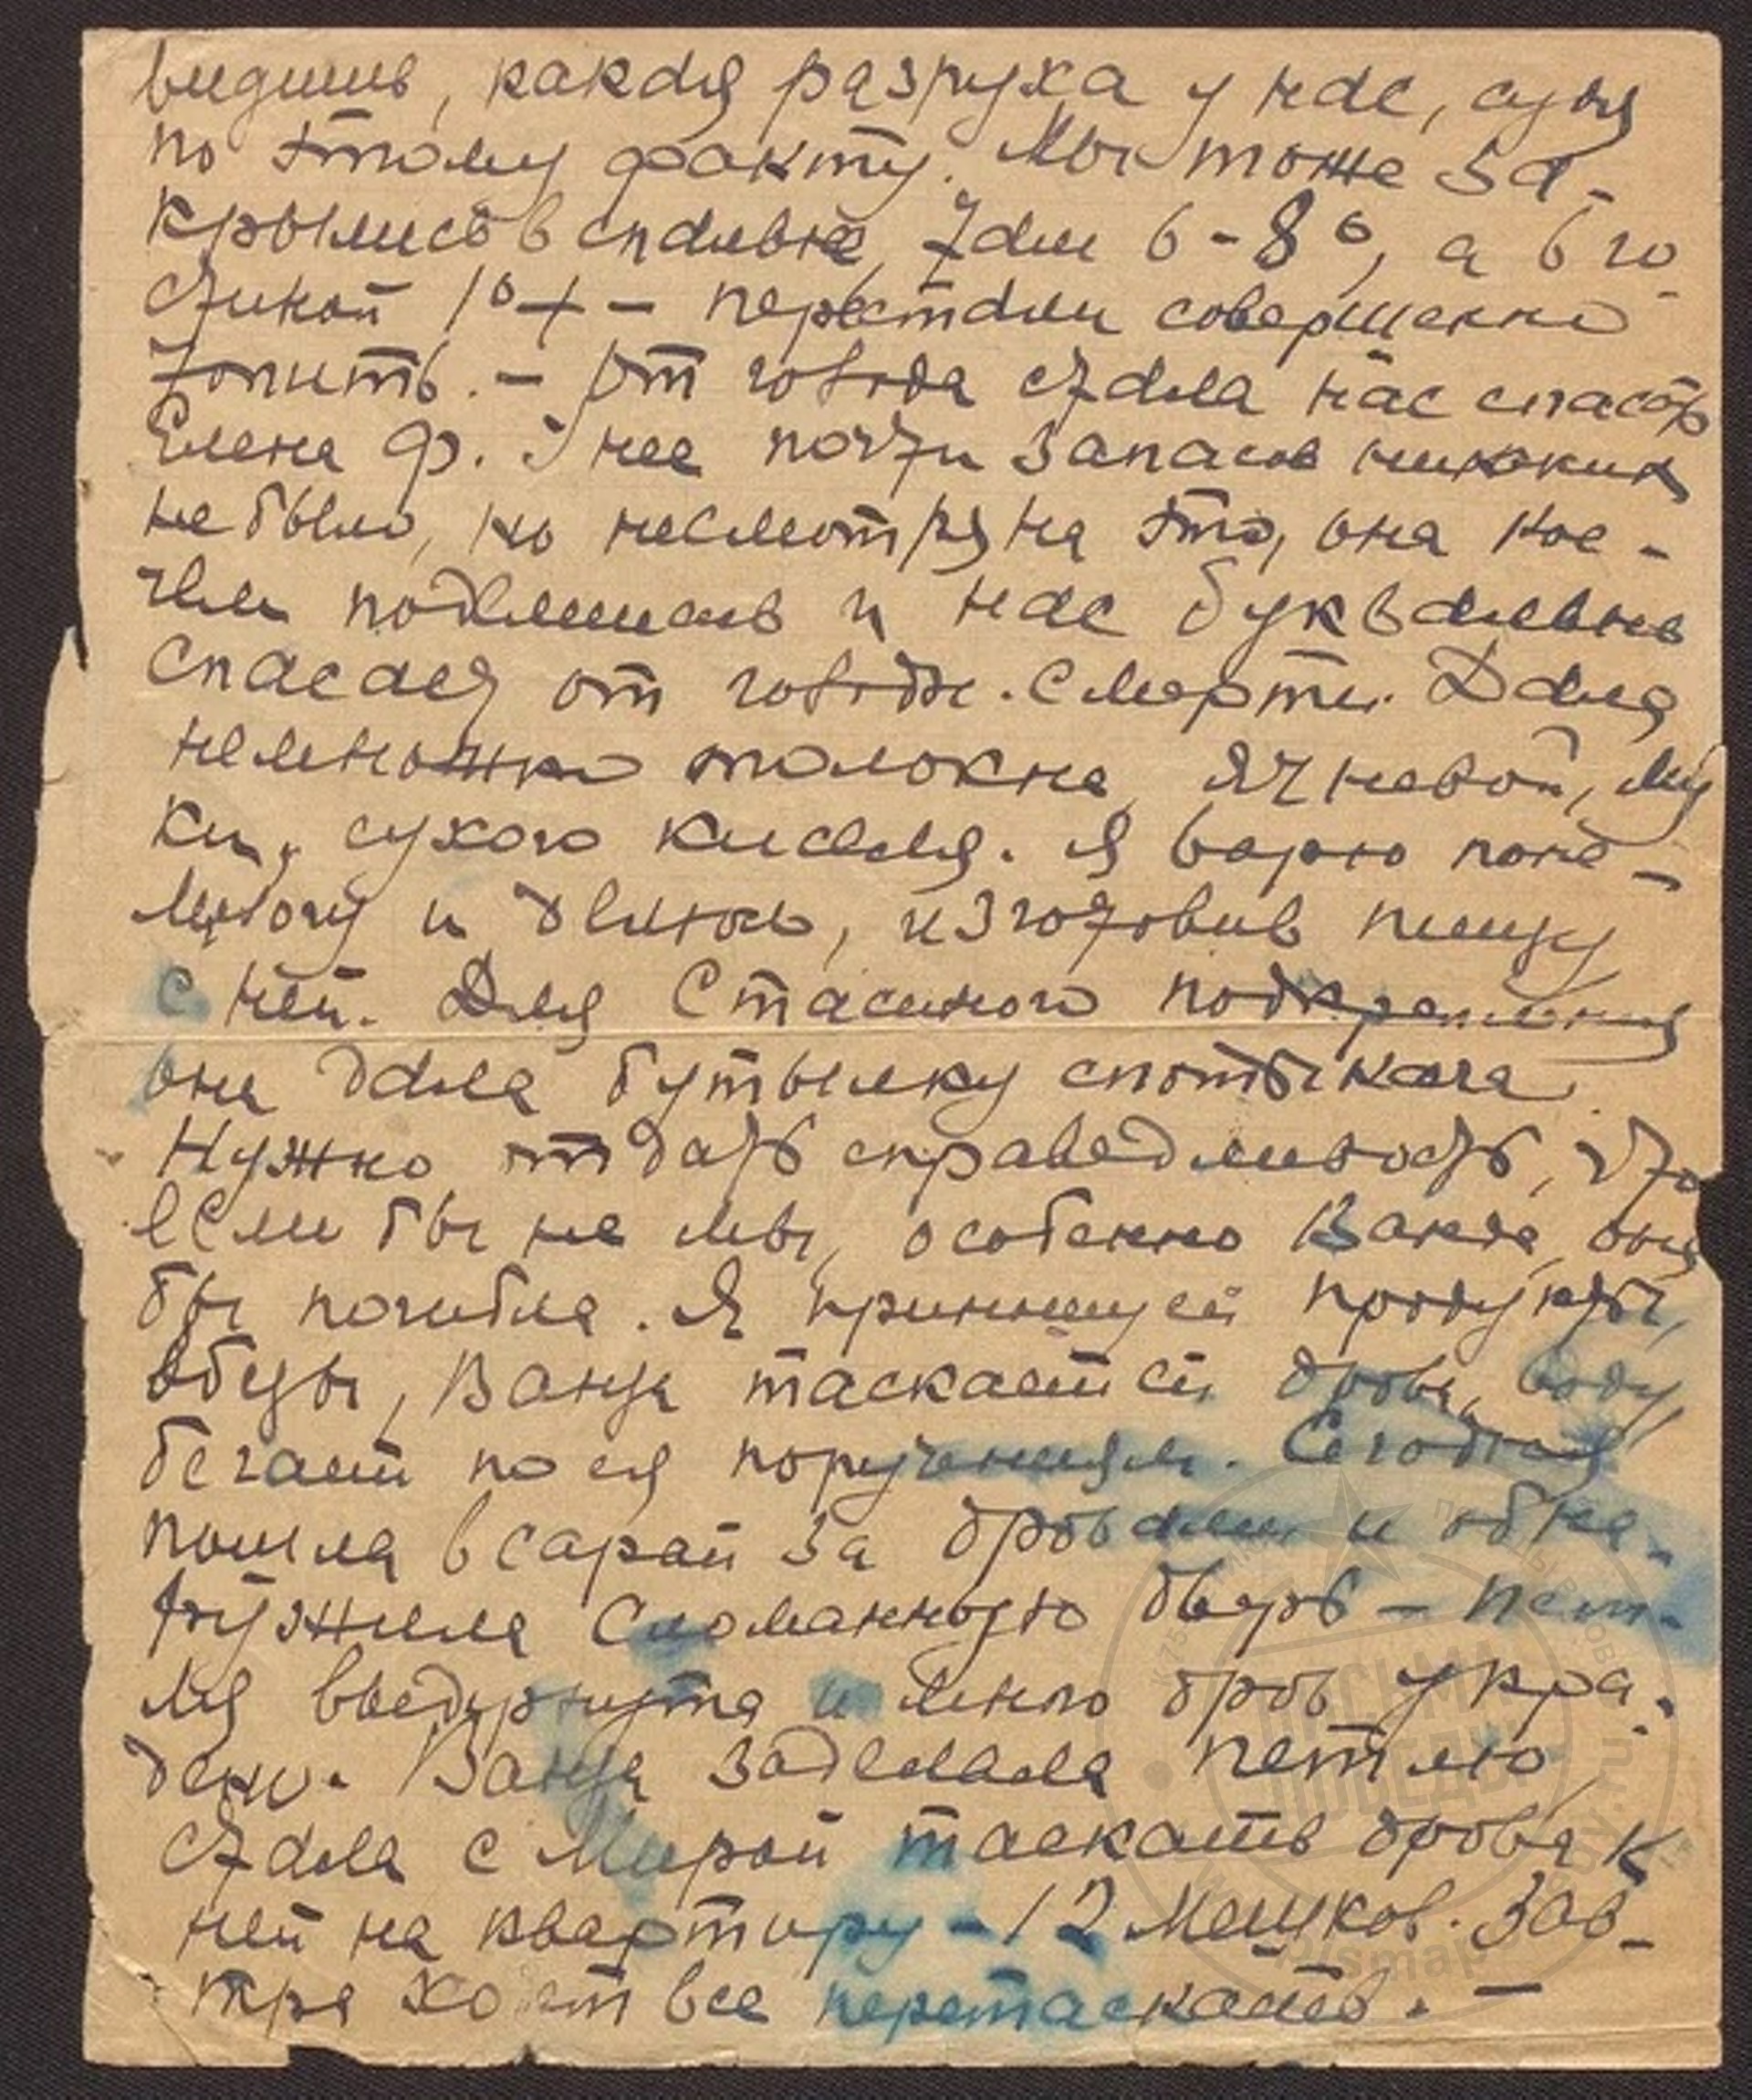 видишь, какая разруха у нас, судя
по этому факту. Мы тоже за-
крылись в спальне, там 6-8°, а в го-
стиной 1°+ – перестали совершенно
топить. – От голода стала нас спасать
Елена Ф. У нее почти запасов никаких
не было, но несмотря на это, она кое-
чем поделилась и нас буквально
спасает от голодн. смерти. Дала
немножко толокна, ячневой, му
ки, сухого киселя. Я варю поне-
многу и делюсь, изготовив пищу
с ней. Для Стасиного подкрепления
она дала бутылку спотыкача.
Нужно отдать справедливость, что
если бы не мы, особенно Ванда, она
бы погибла. Я приношу ей продукты,
обеды, Ванда таскает ей дрова, воду,
бегает по ея поручениям. Сегодня
пошла в сарай за дровами и обна-
ружила сломанную дверь – пет-
ля выдернута и много дров укра-
дено. Ванда заделала петлю,
стала с Мирой таскать дрова к
ней на квартиру – 12 мешков. Зав-
тра хотят все перетаскать. –
ПИСЬМА
ПОБЕДЫ